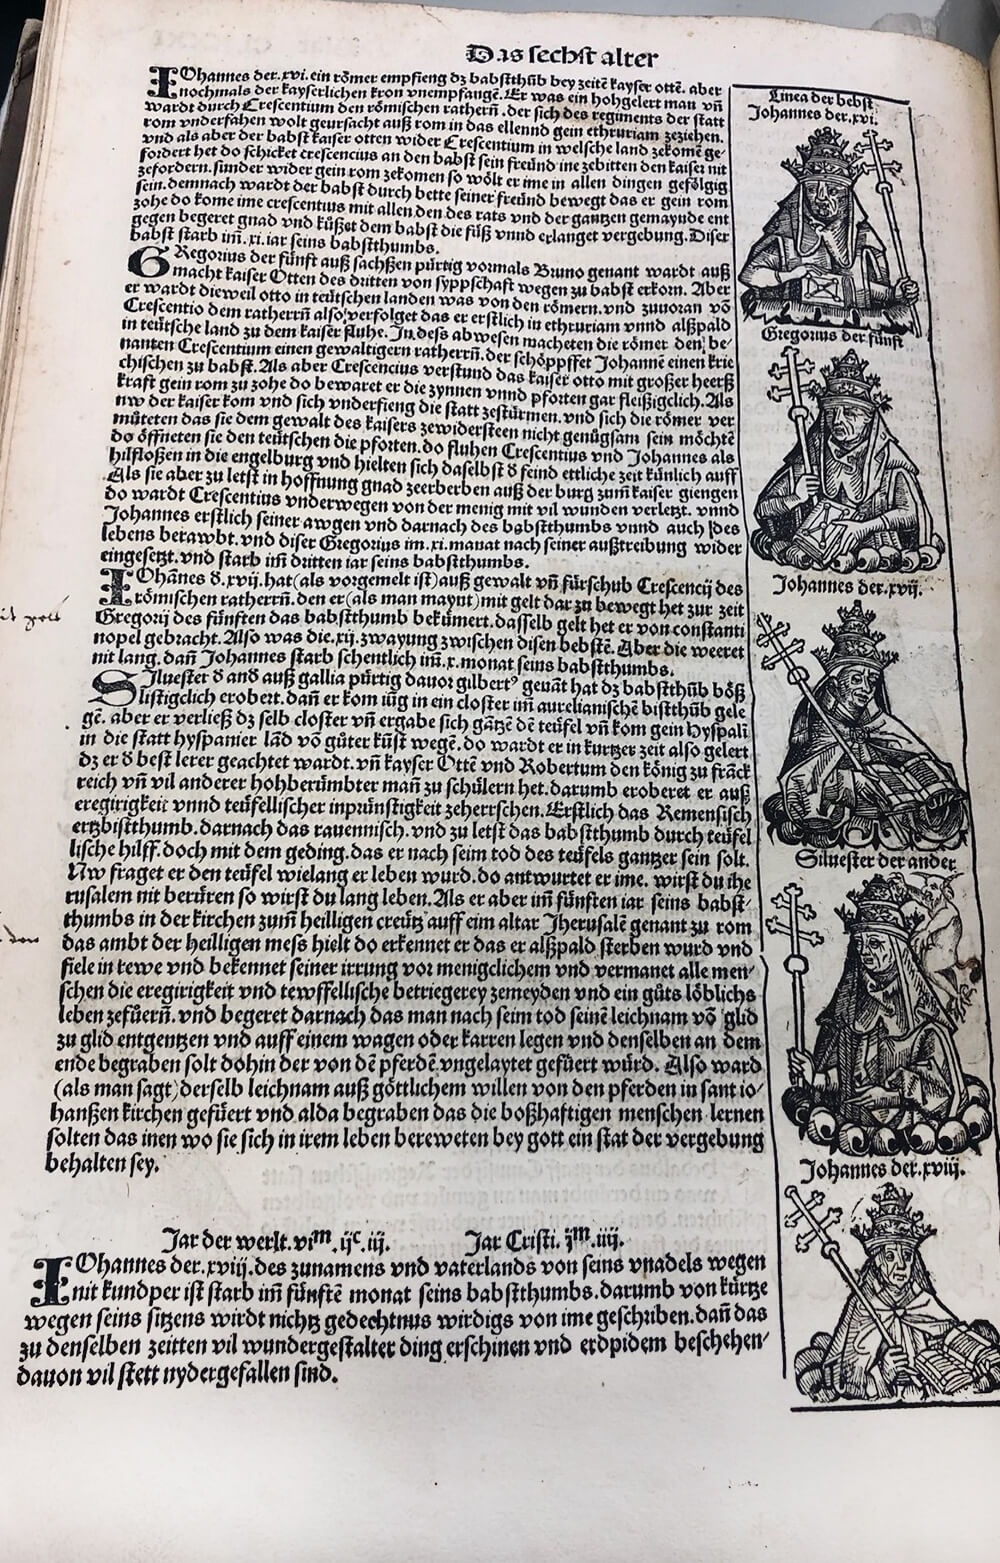 Das sechst alter
IOhannes der.xvi.ein römer empfieng dz babstthůb bey zeitē kayser ottē. aber
nochmals der kayserlichen kron vnempfangē. Er was ein hohgelert man vñ
wardt durch Crescentium den römischen ratherrñ.der sich des regiments der statt
rom vnderfahen wolt geursacht auß rom in das ellennd gein ethruriam zeziehen.
vnd als aber der babst kaiser otten wider Crescentium in welsche land zekomē ge-
fordert het do schicket crescencius an den babst sein freünd ine zebitten den kaiser nit
zefordern.sunder wider gein rom zekomen so wölt er ime in allen dingen gefölgig
sein.demnach wardt der babst durch bette seiner freünd bewegt das er gein rom
zohe do kome ime crescentius mit allen den des rats vnd der gantzen gemaynde ent
gegen begeret gnad vnd küßet dem babst die füß vnnd erlanget vergebung.Diser
babst starb im̄.xi.iar seins babstthumbs.
GRegorius der fünft auß sachßen pürtig vormals Bruno genant wardt auß
macht kaiser Otten des dritten von sypp̄schaft wegen zu babst erkorn. Aber
er wardt dieweil otto in teütschen landen was von den römern.vnd zuuoran vō
Crescentio dem ratherrñ also verfolget das er erstlich in ethruriam vnnd alßpald
in teütsche land zu dem kaiser fluhe. In dess abwesen macheten die römer den be-
nanten Crescentium einen gewaltigern ratherrñ.der schöppffet Johannē einen krie
chischen zu babst.Als aber Crescencius verstund das kaiser otto mit großer heerß
kraft gein rom zu zohe do bewaret er die zynnen vnnd pforten gar fleißigelich.Als
nw der kaiser kom vnd sich vnderfieng die statt zestürmen.vnd sich die römer ver
můteten das sie dem gewalt des kaisers zewidersteen nicht genůgsam sein möchtē
do öffneten sie den teütschen die pforten.do fluhen Crescentius vnd Johannes als
hilfloßen in die engelburg vnd hielten sich daselbst ð feind ettliche zeit künlich auff
Als sie aber zu letst in hoffnung gnad zeerberben auß der burg zum̄ kaiser giengen
do wardt Crescentius vnderwegen von der menig mit vil wunden verletzt. vnnd
Johannes erstlich seiner awgen vnd darnach des babstthumbs vnnd auch des
lebens berawbt.vnd diser Gregorius im.xi.manat nach seiner außtreibung wider
eingesetzt.vnd starb im̄ dritten iar seins babstthumbs.
IOhānes ð.xvij.hat(als vorgemelt ist)auß gewalt vñ fürschub Crescencij des
römischen ratherrñ.den er(als man maynt)mit gelt dar zu bewegt het zur zeit
Gregorij des fünften das babstthumb bekůmert.dasselb gelt het er von constanti
nopel gebracht.Also was die.xij.zwayung zwischen disen bebstē.Aber die weeret
nit lang.dañ Johannes starb schentlich im̄.x.monat seins babstthumbs.
SIluester ð and auß gallia pürtig dauor gilbert⁹ genāt hat dz babstthůb böß
listigclich erobert.dañ er kom iūg in ein closter im̄ aurelianischē bistthūb gele
gē. aber er verließ dz selb closter vñ ergabe sich gātzē dē teüfel vñ kom gein hyspali
in die statt hyspanier lād vō gůter kūst wegē.do wardt er in kurtzer zeit also gelert
dz er ð best lerer geachtet wardt.vñ kayser Ottē vnd Robertum den könig zu frāck
reich vñ vil anderer hohberümbter mañ zu schülern het.darumb eroberet er auß
eregirigkeit vnnd teüfellischer inprünstigkeit zeherrschen.Erstlich das Remensisch
ertzbistthumb.darnach das rauennisch.vnd zu letst das babstthumb durch teüfel
lische hilff.doch mit dem geding.das er nach seim tod des teüfels gantzer sein solt.
Nw fraget er den teüfel wielang er leben wurd.do antwurtet er ime. wirst du ihe
rusalem nit berüren so wirst du lang leben.Als er aber im̄ fünften iar seins babst-
thumbs in der kirchen zum̄ heilligen creütz auff eim altar Jherusalē genant zu rom
das ambt der heilligen mess hielt do erkennet er das er alßpald sterben wurd vnd
fiele in rewe vnd bekennet seiner irrung vor menigclichem vnd vermanet alle men-
schen die eregirigkeit vnd tewffellische betriegerey zemeyden vnd ein gůts löblichs
leben zefüerñ.vnd begeret darnach das man nach seim tod seinē leichnam vō glid
zu glid entgentzen vnd auff einem wagen oder karren legen vnd denselben an dem
ende begraben solt dohin der von dē pferdē vngelaytet gefüert würd. Also ward
(als man sagt)derselb leichnam auß göttlichem willen von den pferden in sant io-
hanßen kirchen gefüert vnd alda begraben das die boßhaftigen menschen lernen
solten das inen wo sie sich in irem leben bereweten bey gott ein stat der vergebung
behalten sey.
Jar der werlt.vim.ijc.iij.
Jar Cristi.jm.iiij.
IOhannes der.xviij.des zunamens vnd vaterlands von seins vnadels wegen
nit kundper ist starb im̄ fünftē monat seins babstthumbs.darumb von kürtze
wegen seins sitzens wirdt nichtz gedechtnus wirdigs von ime geschriben.dañ das
zu denselben zeitten vil wundergestalter ding erschinen vnd erdpidem beschehen-
dauon vil stett nydergefallen sind.
Linea der bebst
Johannes der.xvi.
Gregorius der fünft
Johannes der.xvij.
Siluester der ander
Johannes der.xviij.